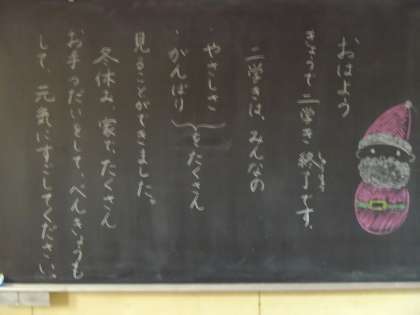 おはよう
きょうで二学き終了です。
二学きは、みんなの
・やさしさ
・がんばり
をたくさん
見ることができました。
冬休み、家で、たくさん
お手つだいをして、べんきょうも
して、元気にすごしてください。